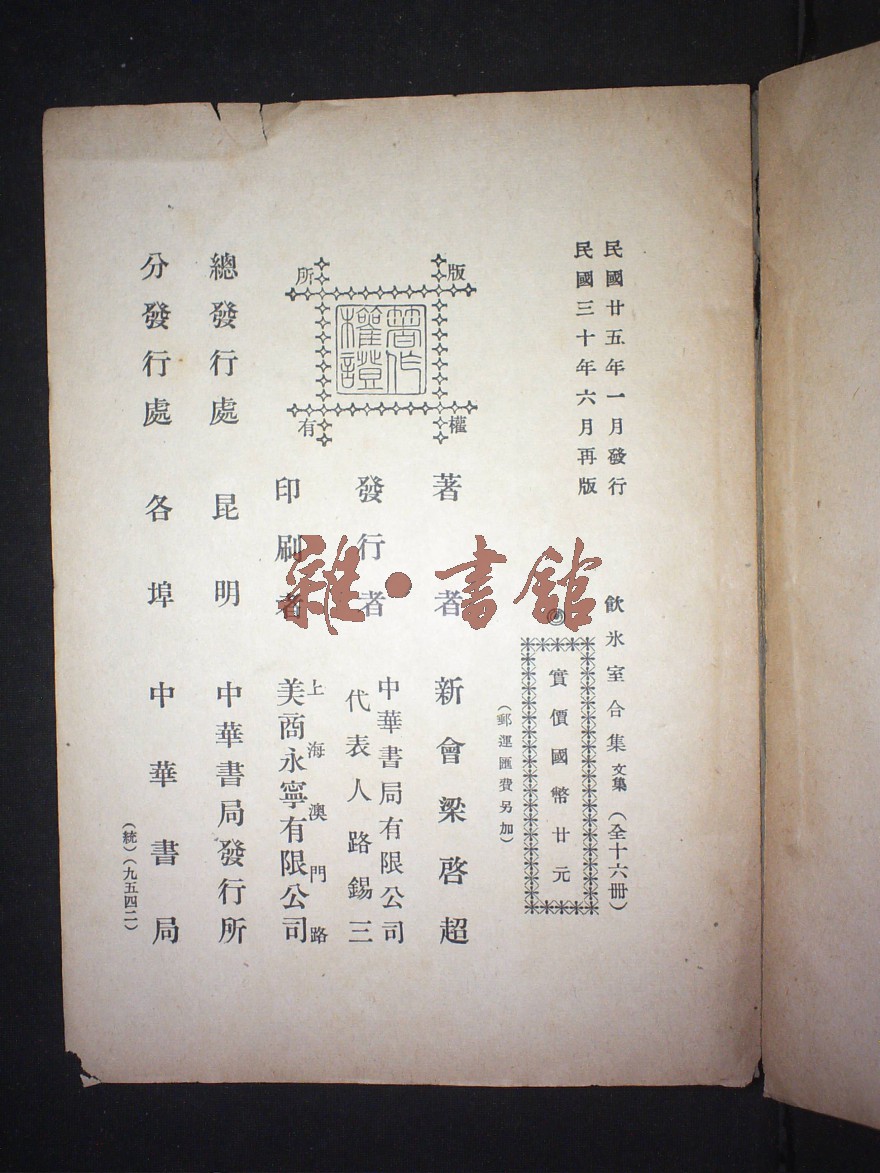 民國廿五年一月發行
民國三十年六月再版
飲氷室合集 文集 (全十六冊)
◎
實價國幣廿元
(郵運匯費另加)
版權所有
著作權證
著者 新會梁啓超
發行者 中華書局有限公司
代表人路錫三
印刷者 上海澳門路
美商永寧有限公司
總發行處 昆明 中華書局發行所
分發行處 各埠 中華書局
(統)(九五四二)
雜·書館